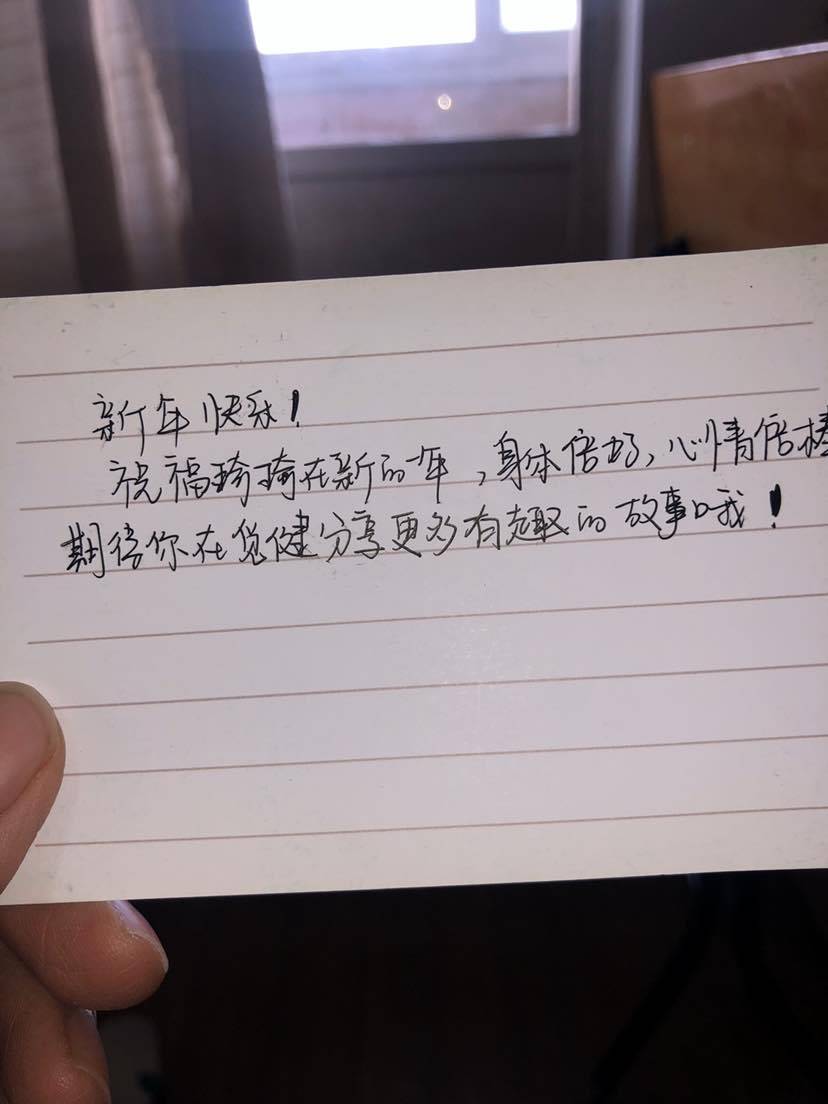 新年快乐!
祝福珍琦在新的一年,身体倍好,心情倍棒
期待你在觉健分享更多有趣的故事哦!